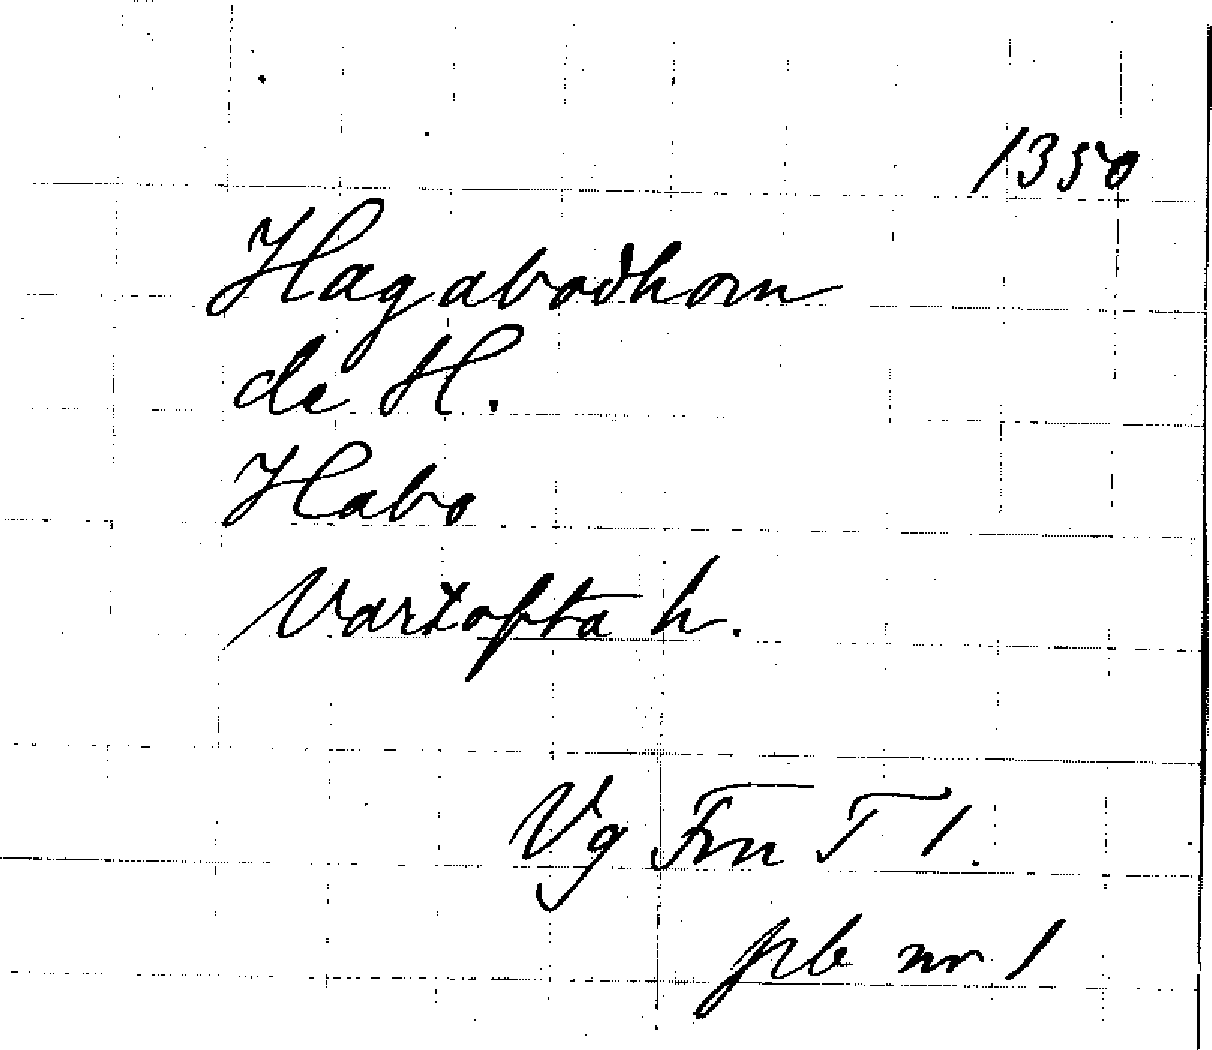 1350
Hagabodhorn
de H.
Habo
Vartofta h.
Vg Frn T 1.
pb nr 1